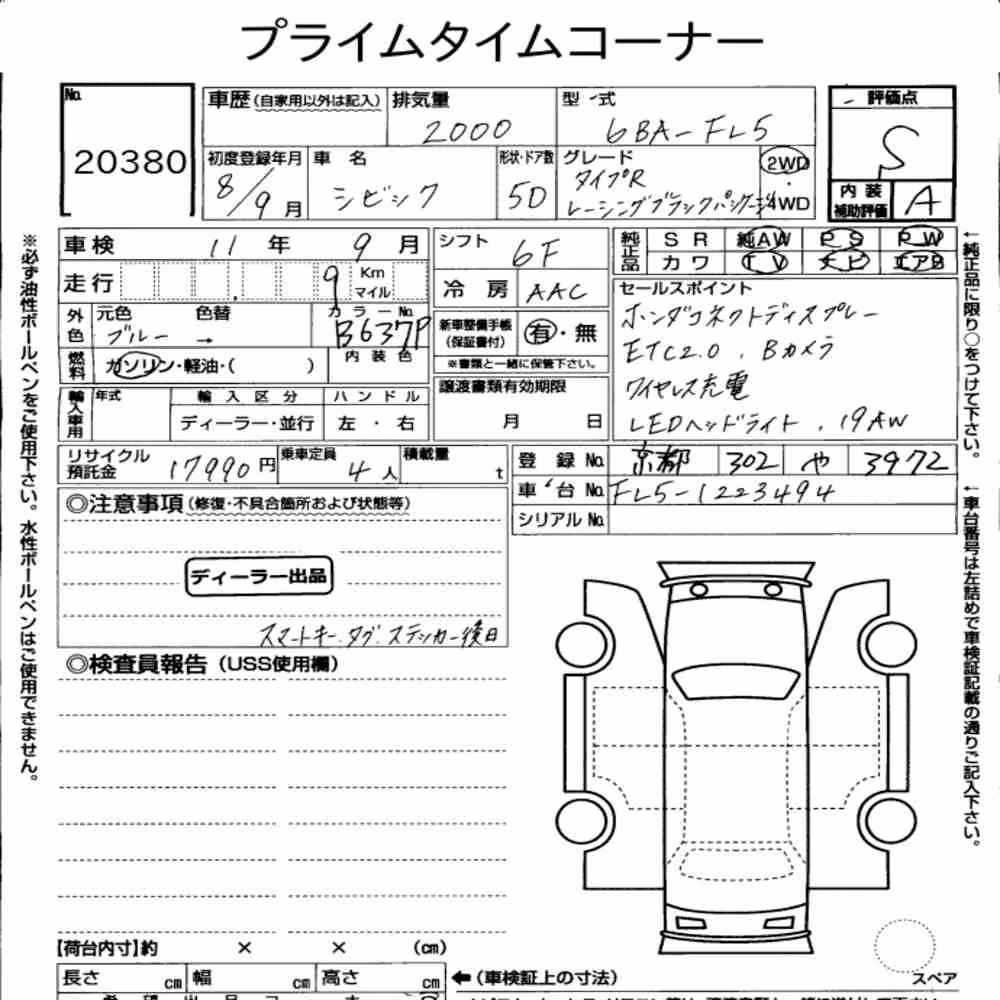 プライムタイムコーナー
No. 20380
車歴(自家用以外は記入) 排気量 2000 型式 6BA-FL5
評価点 S
初度登録年月 8/9月 車名 シビック 形状・ドア数 5D グレード タイプR レーシングブラックパッケージ 2WD・4WD
内装補助評価 A
車検 11年 9月 シフト 6F
純正品 SR 純AW PS PW
カワ TV ナビ エアB
走行 9 Km マイル 冷房 AAC
セールスポイント
ホンダコネクトディスプレー
ETC2.0 . Bカメラ
ワイヤレス充電
LEDヘッドライト . 19AW
外色 元色 ブルー → 色替 カラーNo. B637P
新車整備手帳(保証書付) 有・無
※書類と一緒に保管下さい。
燃料 ガソリン・軽油・( ) 内装色
譲渡書類有効期限
月 日
輸入車用 年式 輸入区分 ハンドル
ディーラー・並行 左・右
リサイクル預託金 17990円 乗車定員 4人 積載量 t
登録No. 京都 302 や 3972
車台No. FL5-1223494
シリアルNo.
◎注意事項(修復・不具合箇所および状態等)
ディーラー出品
スマートキー.タグ.ステッカー後日
◎検査員報告(USS使用欄)
※必ず油性ボールペンをご使用下さい。水性ボールペンはご使用できません。
←純正品に限り○をつけて下さい。
←車台番号は左詰めで車検証記載の通りご記入下さい。
【荷台内寸】約 × × (cm)
スペア
長さ cm 幅 cm 高さ cm ←(車検証上の寸法)